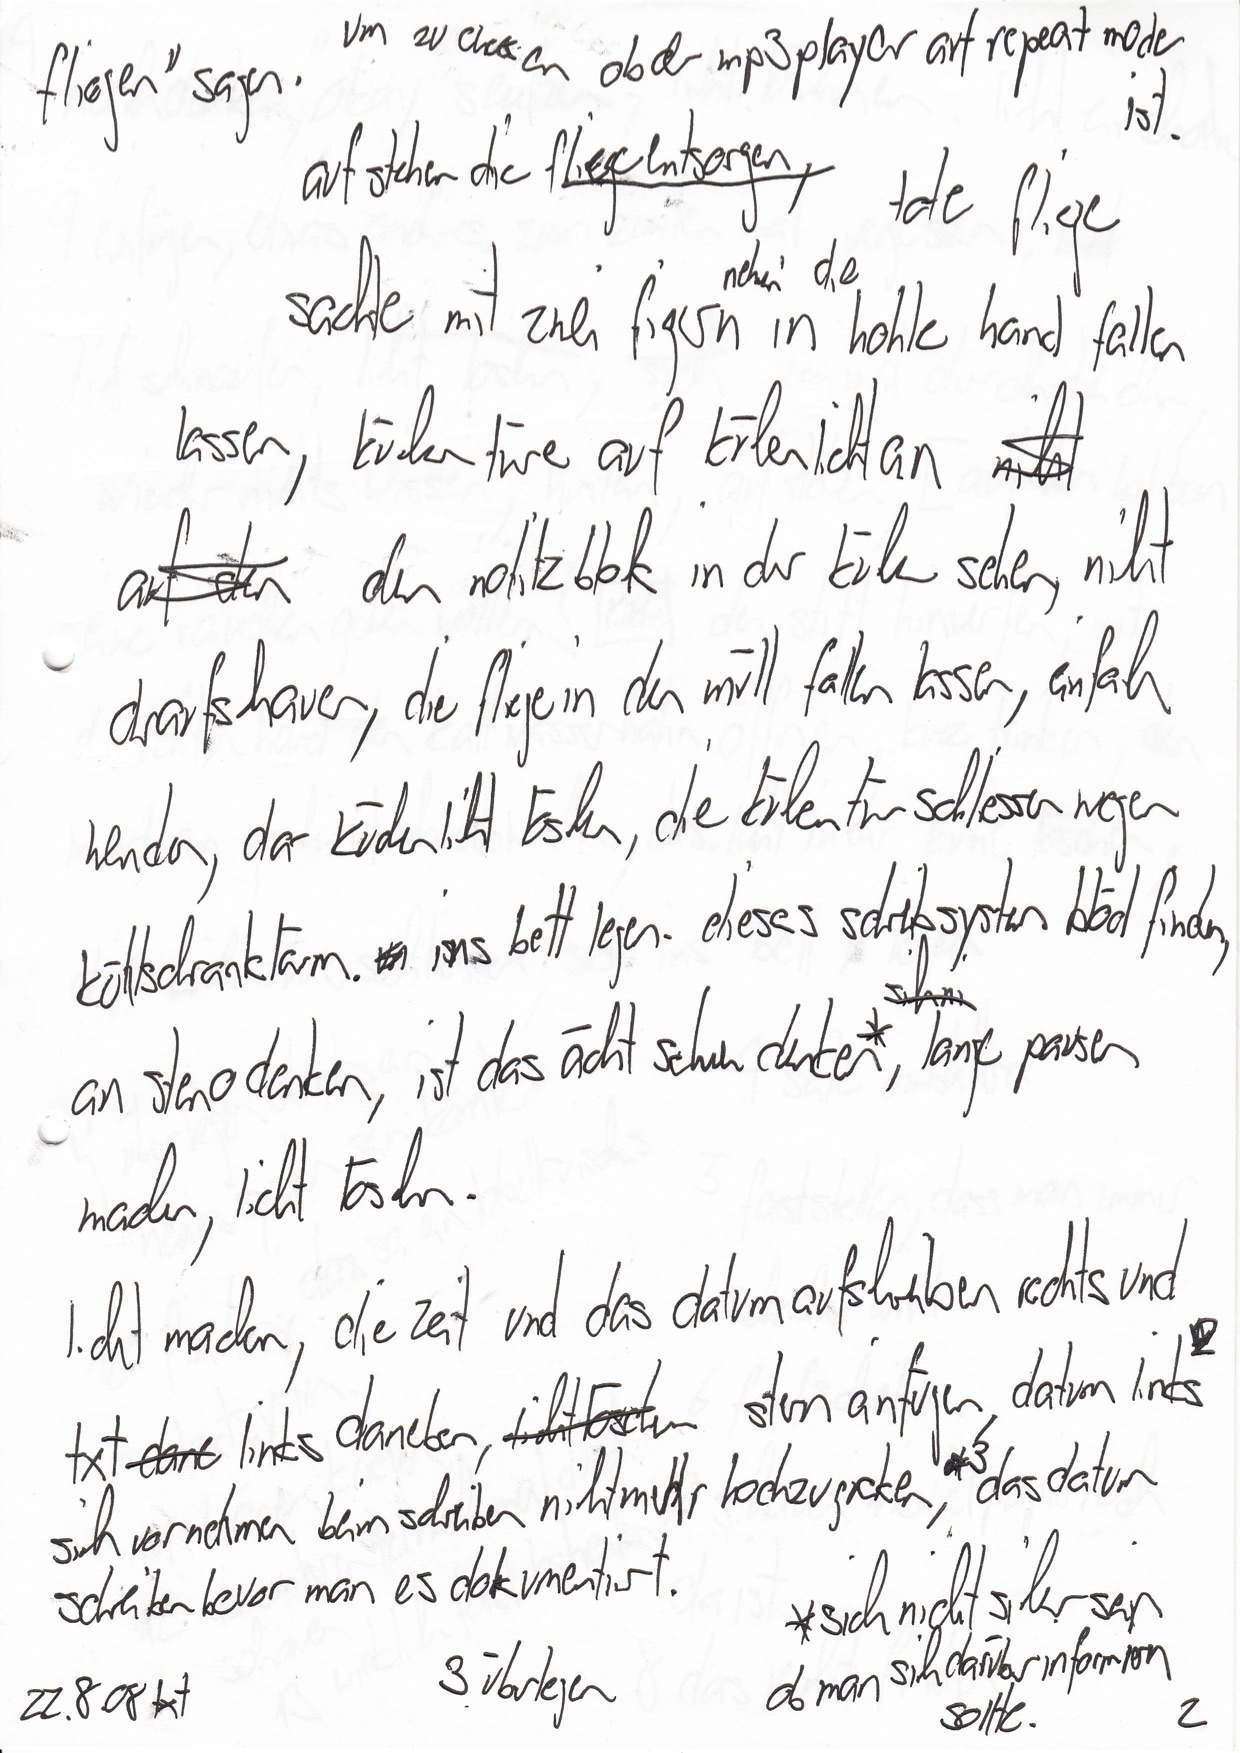 um zu checken ob der mp3player auf repeat mode
fliegen" sagen.
ist.
aufstehen die fliege entsorgen,
tote fliege
nehm die
sachte mit zwei figern in hohle hand fallen
lassen, kükentüre auf kükenlicht an nicht
auf den den notitzblok in der küke sehen, nicht
draufshauen, die fliege in den müll fallen lassen, einfah
wenden, das kückenliht lösken, die küken tür schliessen wegen
kühlschranklärm. ins bett legen. dieses schreibsystem blöd finden,
an steno denken, ist das ächt schun denken*, lange pausen
machen, licht löschn.
licht machen, die zeit und das datum aufshreiben rechts und
txt dane links daneben, licht löschen stern anfügen, datum links 2
sich vornehmen beim schreiben nicht mehr hochzugucken, *3 das datum
schreiben bevor man es dokumentirt.
*sich nicht siher sein
ob man sich darüber informiren
sollte.
3 überlegen
22.8 08 txt
2